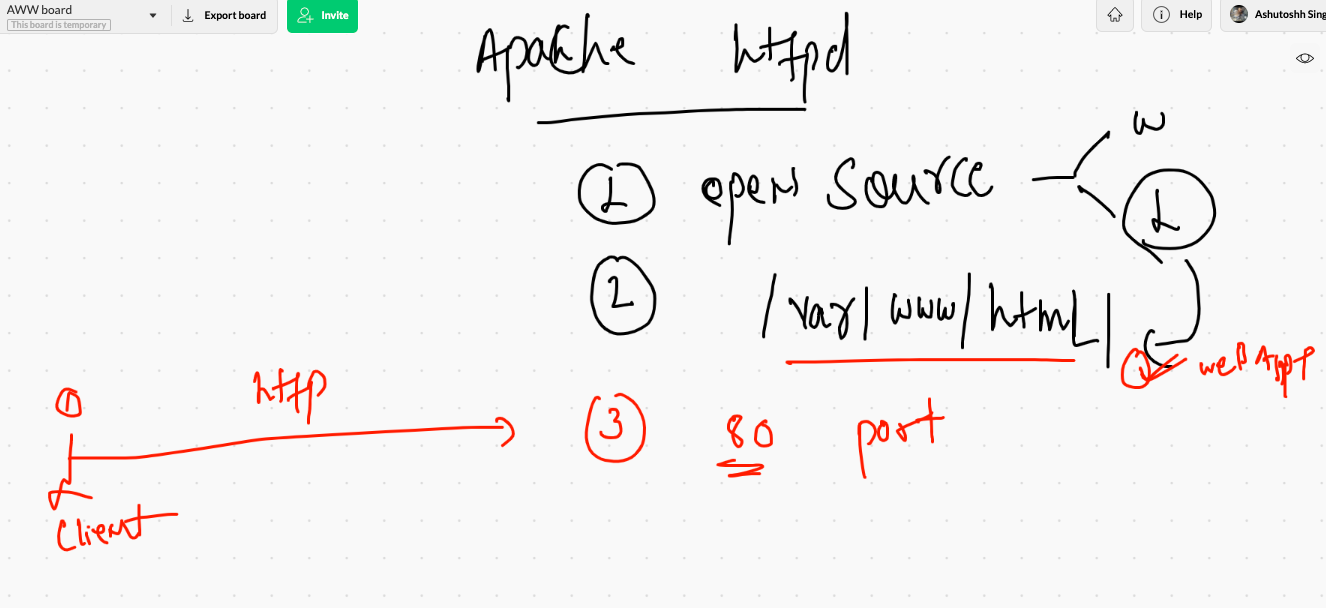 AWW board
This board is temporary
Export board
Invite
Help
Ashutoshh Sing
Apache httpd
1 open source
w
L
2 /var/www/html/
1 web App
http
3 80 port
Client